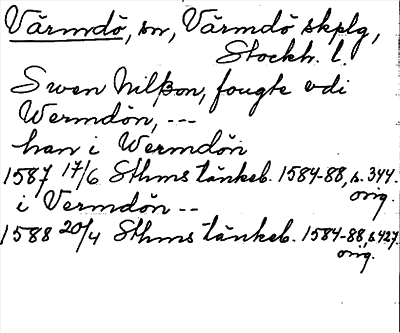 Värmdö, sn, Värmdö skplg,
Stockh. l.
Swen Nilßon, fougte vdi
Wermdön, ---
han i Wermdön
1587 17/6 Sthms tänkeb. 1584-88, s. 344.
orig.
i Vermdön --
1588 20/4 Sthms tänkeb. 1584-88, s. 427.
orig.